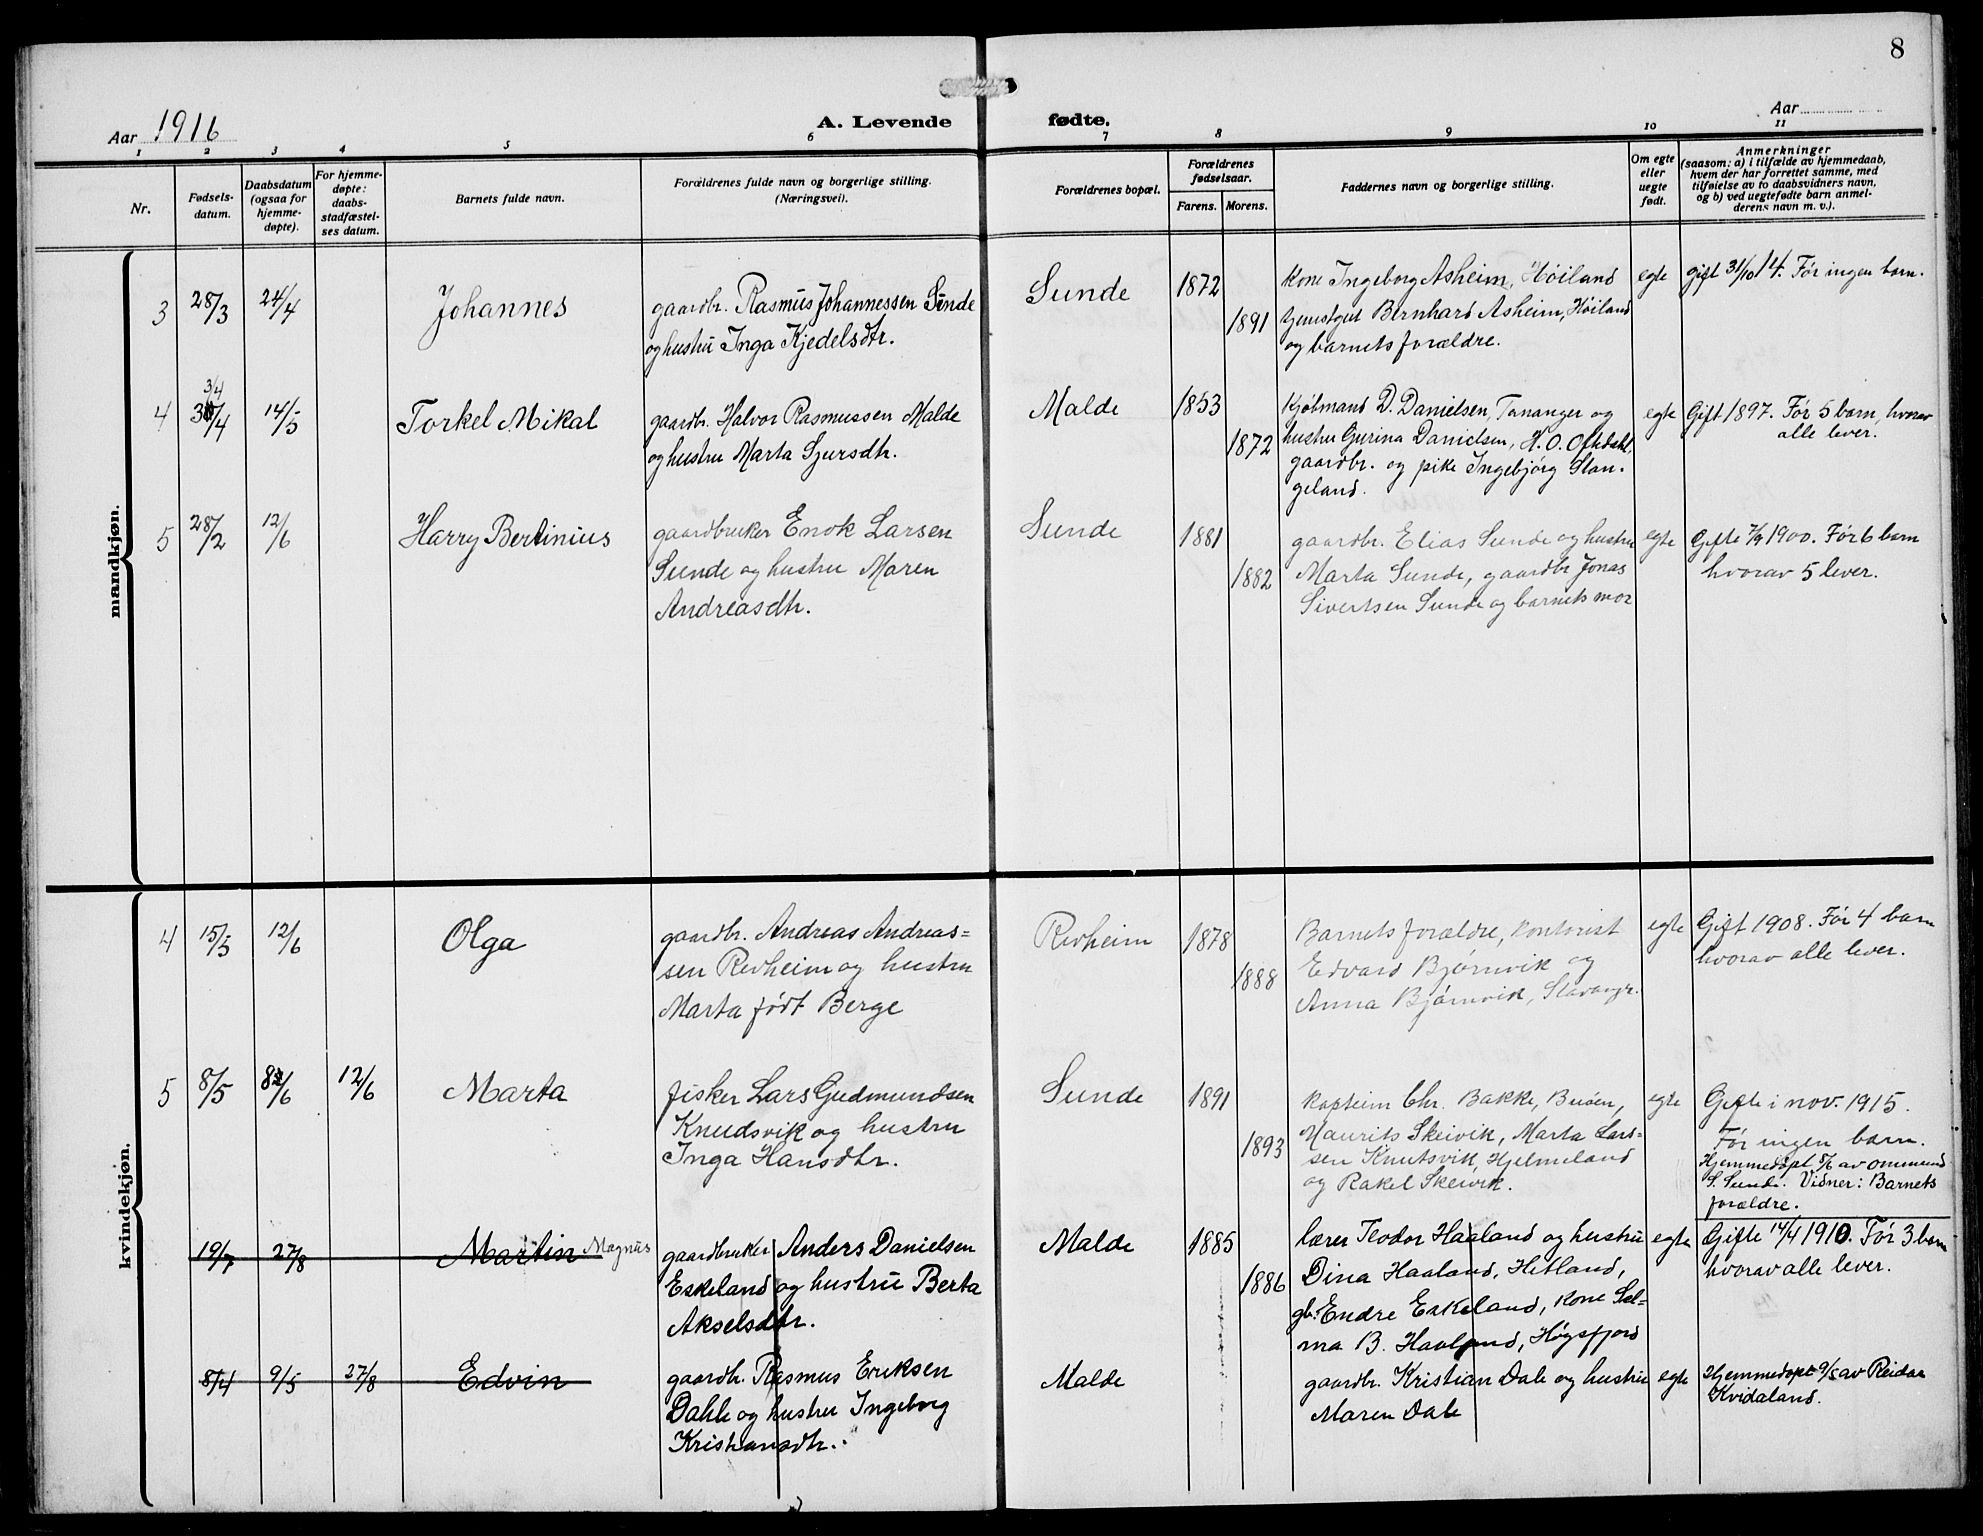 8
Aar 1916
A. Levende fødte.
Aar
1 2 3 4 5 6 7 8 9 10 11
Nr.
Fødsels-
datum.
Daabsdatum
(ogsaa for
hjemme-
døpte).
For hjemme-
døpte:
daabs-
stadfæstel-
ses datum.
Barnets fulde navn.
Forældrenes fulde navn og borgerlige stilling.
(Næringsvei).
Forældrenes bopæl.
Forældrenes
fødselsaar.
Farens. Morens.
Faddernes navn og borgerlige stilling.
Om egte
eller
uegte
født.
Anmerkninger
(saasom: a) i tilfælde av hjemmedaab,
hvem der har forrettet samme, med
tilføielse av to daabsvidners navn,
og b) ved uegtefødte barn anmel-
derens navn m. v.).
mandkjøn.
3
28/3
24/4
Johannes
gaardbr. Rasmus Johannessen Sunde
og hustru Inga Kjedelsdtr.
Sunde
1872
1891
Kone Ingeborg Asheim, Høiland
tjenestgut Bernhard Asheim, Høiland
og barnets forældre.
egte
gift 31/10 14. Før ingen barn.
4
3/4
14/5
Torkel Mikal
gaardbr. Halvor Rasmussen Malde
og hustru Marta Sjursdtr.
Malde
1853
1872
Kjøbmand D. Danielsen, Tananger og
hustru Gurina Danielsen, H. O. Oftedahl,
gaardbr. og pike Ingebjørg Stan-
geland.
egte
Gift 1897. Før 5 barn, hvorav
alle lever.
5
28/2
12/6
Harry Bertinius
gaardbruker Enok Larsen
Sunde og hustru Maren
Andreasdtr.
Sunde
1881
1882
gaardbr. Elias Sunde og hustru
Marta Sunde, gaardbr Jonas
Sivertsen Sunde og barnets mor
egte
Gifte 7/9 1900. Før 6 barn
hvorav 5 lever.
kvindekjøn.
4
15/5
12/6
Olga
gaardbr. Andreas Andreas=
sen Revheim og hustru
Marta født Berge
Revheim
1878
1888
Barnets forældre, kontorist
Edvard Bjørnvik og
Anna Bjørnvik, Stavangr.
egte
Gift 1908. Før 4 barn
hvorav alle lever.
5
8/5
8/6
12/6
Marta
fisker Lars Gudmundsen
Knudsvik og hustru
Inga Hansdtr.
Sunde
1891
1893
Kaptein Chr. Bakke, Buøen,
Maurits Skeivik, Marta Lars=
sen Knutsvik, Hjelmeland
og Rakel Skeivik.
egte
Gifte i nov. 1915.
Før ingen barn.
Hjemmedøpt 8/6 av Ommund
S. Sunde. Vidner: Barnets
forældre.
19/7
27/8
Martin Magnus
gaardbruker Anders Danielsen
Eskeland og hustru Berta
Akselsdtr.
Malde
1885
1886
lærer Teodor Haaland og hustru
Dina Haaland, Hetland,
gbr. Endre Eskeland, kone Sel=
ma B. Haaland, Høgsfjord
egte
Gifte 14/4 1910. Før 3 barn
hvorav alle lever.
8/4
9/5
27/8
Edvin
gaardbr. Rasmus Eriksen
Dahle og hustru Ingeborg
Kristiansdtr.
Malde
gaardbr. Kristian Dale og hustru
Maren Dale
egte
Hjemmedøpt 9/5 av Reidar
Kvidaland.